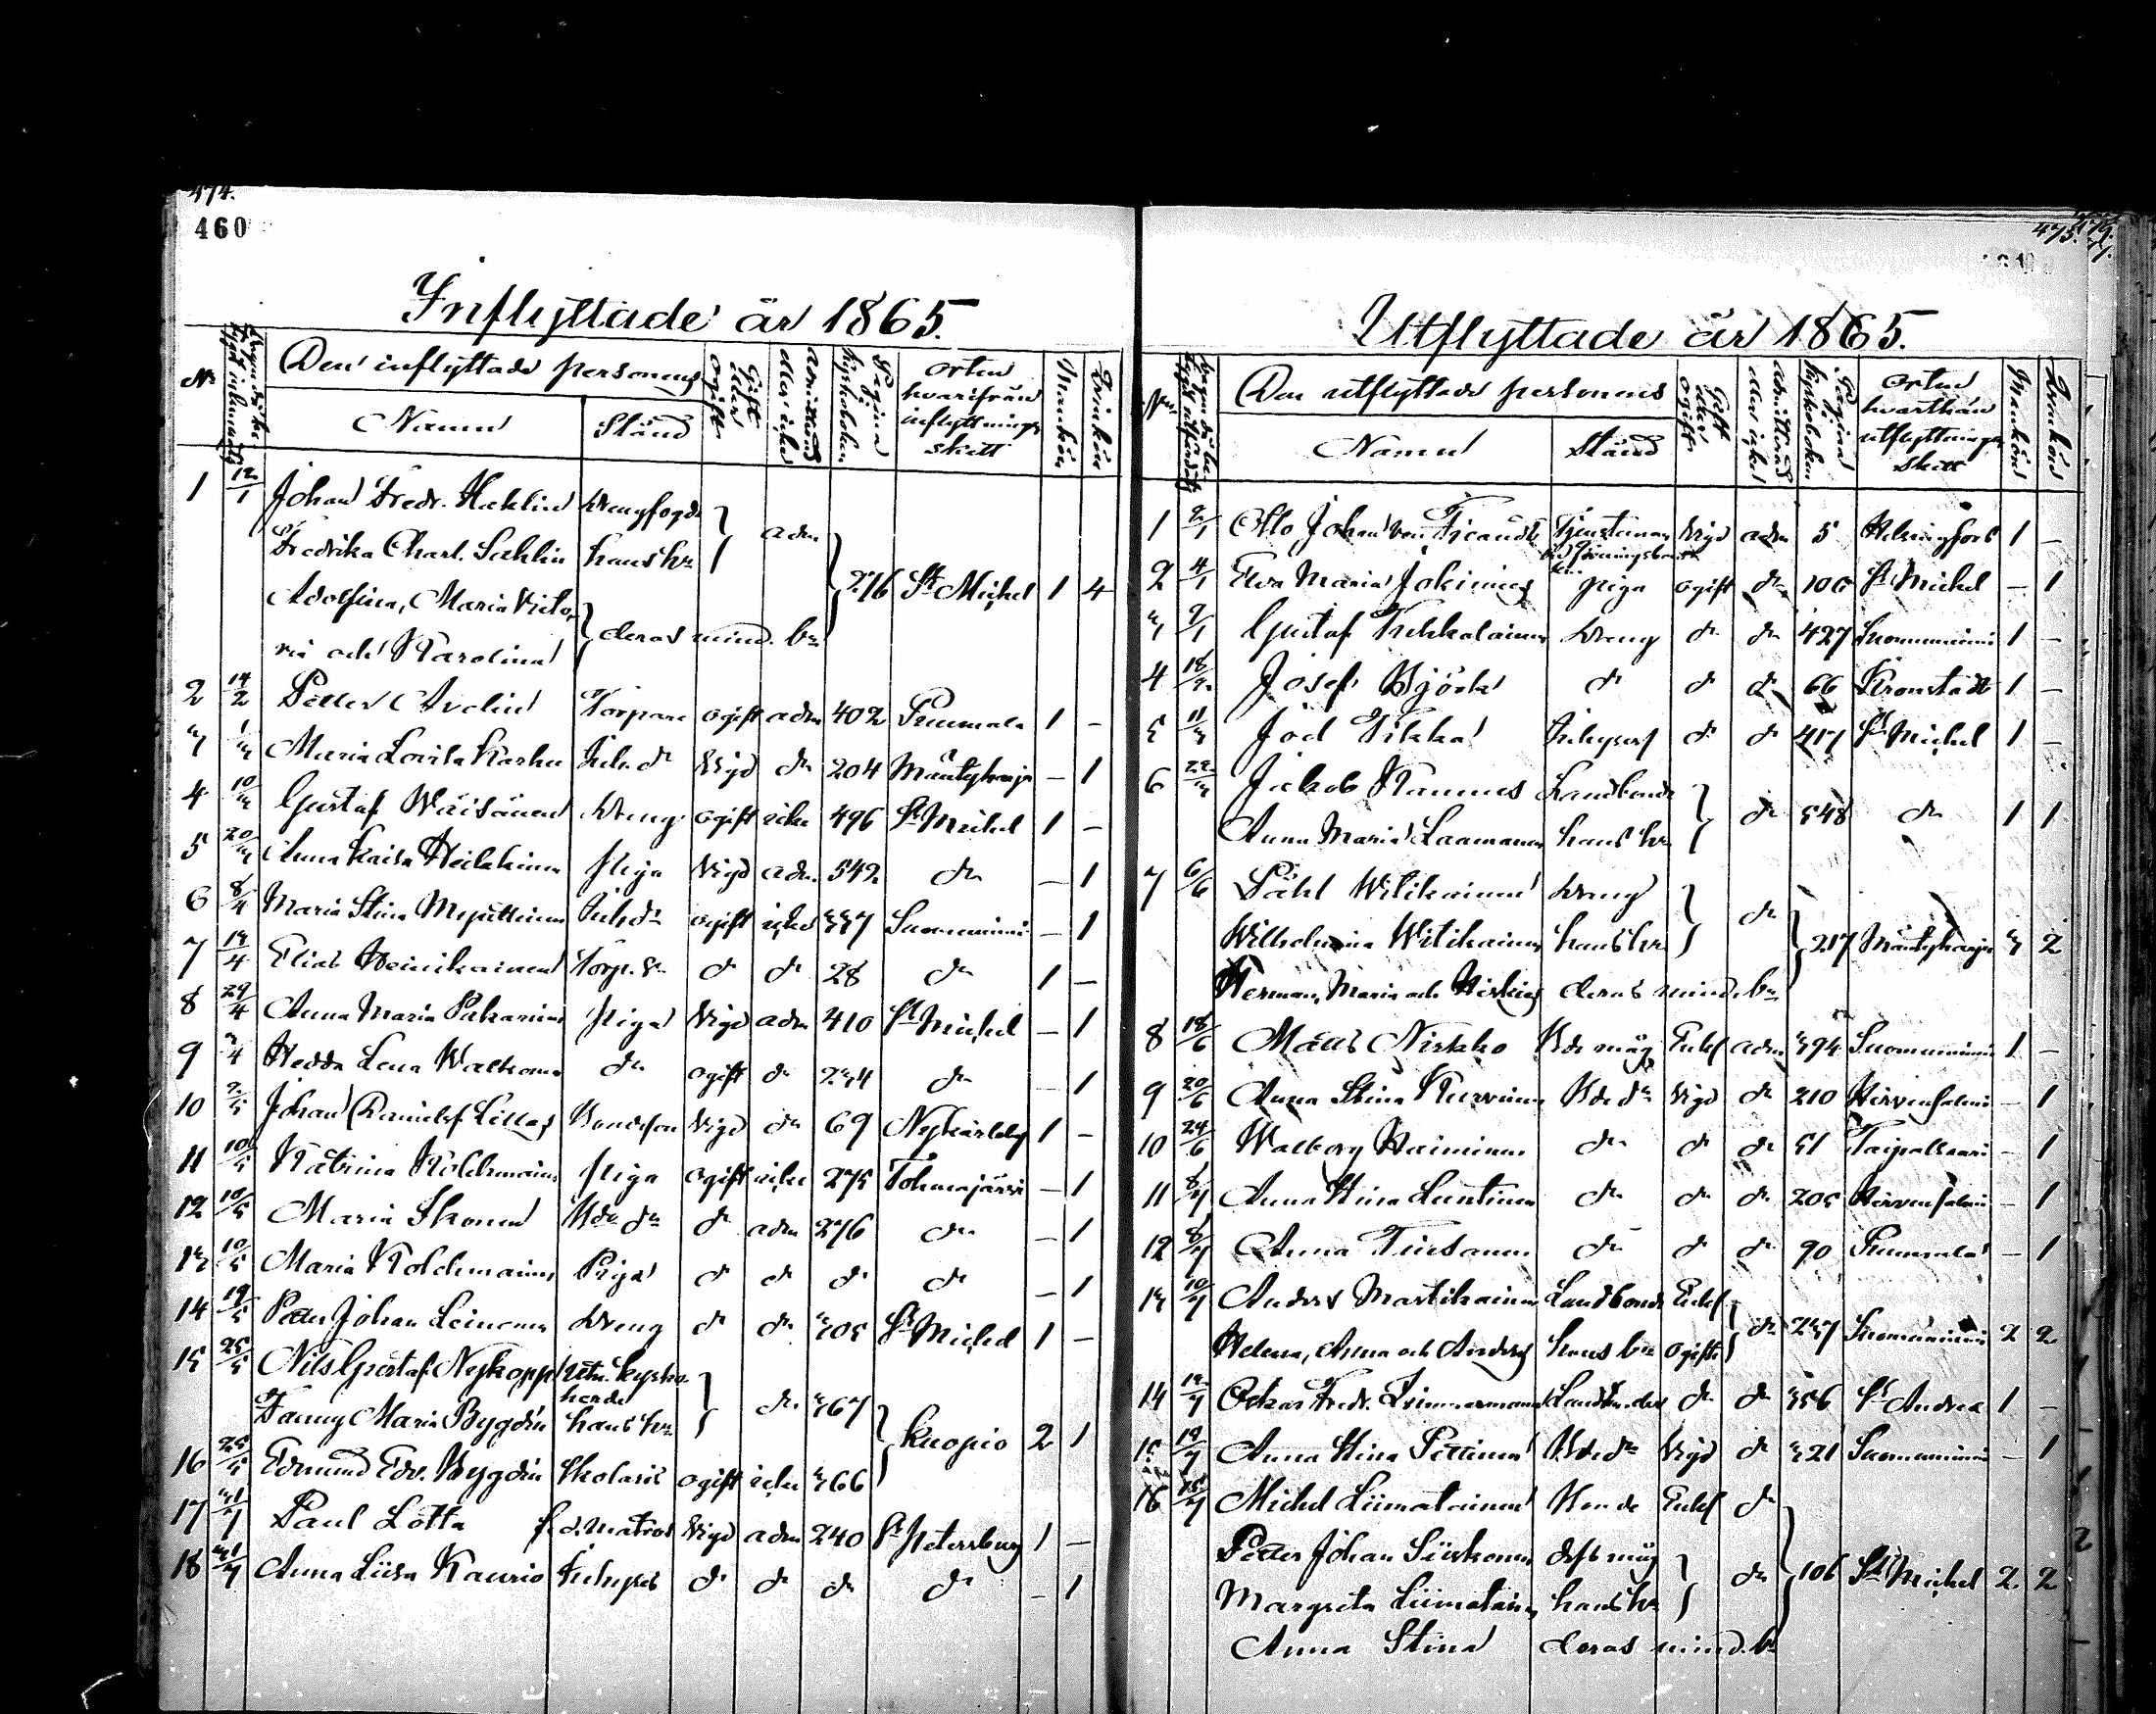 474.
460
Inflyttade år 1865.
No
Den inflyttade personens
Namn
Stånd
Gift eller ogift
admitterad eller icke
Pagina i kyrkoboken
orten hvarifrån inflyttningen skett
Mankön
Qvinkön
1 12/1 Johan Fredr. Hahlin Drengfogde
Fredrika Charl. Sahlin hans hu adm
Adolfina, Maria Victo- 276 St Michel 1 4
ria och Karolina deras mind. bn
2 14/2 Petter Avelin Torpare ogift adm 402 Puumala 1 -
3 1/3 Maria Lovisa Karhu Inh. dr Vigd dn 204 Mäntyharju - 1
4 10/3 Gustaf Wäisänen Dreng ogift icke 496 St Michel 1 -
5 20/3 Anna Kaisa Heikkinen Piga Vigd adm. 542 dn - 1
6 8/4 Maria Stina Myyttinen Inh dr ogift icke 337 Suomenniemi - 1
7 13/4 Elias Heinikainen Torp. Sn d d 28 dn 1 -
8 29/4 Anna Maria Pukarinen Piga Vigd adm 410 St Michel - 1
9 /4 Hedda Lena Waltonen dn ogift dn 234 dn - 1
10 2/5 Johan Danielsf Lillas Bondeson Vigd dn 69 Nykarleby 1 -
11 10/5 Katrina Kolehmainen Piga ogift icke 275 Tohmajärvi - 1
12 10/5 Maria Ikonen Bde dr d adm 276 dn - 1
13 10/5 Maria Kolehmainen Piga d d d d - 1
14 19/5 Petter Johan Leinonen Dreng d dn 305 St Michel 1 -
15 25/5 Nils Gustaf Nykopp Utn. kyrko-
herde
Fanny Maria Bygdén hans hu dn 367
Kuopio 2 1
16 25/5 Edmund Edv. Bygdén Skolaris ogift icke 366
17 31/7 Paul Lotta f. d. matros Vigd adm 240 St Petersburg 1 -
18 31/7 Anna Liisa Kaurio Inhyses d d dn d - 1
475.
Utflyttade år 1865.
Den utflyttade personens
Namn
Stånd
Gift eller ogift
admitterad eller icke
Pagina i kyrkoboken
orten hvarthän utflyttningen skett
Mankön
Qvinkön
1 2/1 Otto Johan von Fieandt Tjensteman Vigd adm 5 Helsingfors 1 -
2 4/1 Eva Maria Jokinen piga ogift dn 106 St Michel - 1
3 9/1 Gustaf Tuhkalainen Dreng d dn 427 Suomenniemi 1 -
4 18/2 Josef Björk d d d 66 Kronstadt 1 -
5 11/3 Joel Tikka Inhyses d d 417 St Michel 1 -
6 22/3 Jakob Kaunus Landbonde
Anna Maria Laamanen hans hu dn 548 dn 1 1
7 6/6 Påhl Witikainen Dreng
Wilhelmina Witikainen hans hu dn 217 Mäntyharju 3 2
Herman, Maria och deras mind. bn
8 18/6 Matts Nirkko Bde måg Enkl adm 394 Suomenniemi 1 -
9 20/6 Anna Stina Kurvinen Bde dr Vigd dn 210 Hirvensalmi - 1
10 24/6 Walborg Haiminen dn d dn 51 Taipalsaari - 1
11 8/7 Anna Stina Luntinen dn dn dn 205 Hirvensalmi - 1
12 8/7 Anna Tiusanen dn d dn 90 Puumala - 1
13 10/7 Anders Martikainen Landbonde Enkl
Helena, Anna och Anders hans bn ogifte dn 257 Suomenniemi 2 2
14 12/7 Oskar Fredr. Zimmermann d dn 356 St Andrea 1 -
15 19/7 Anna Stina Pettinen Bde dr Vigd d 321 Suomenniemi - 1
16 25/7 Michel Liimatainen Bonde Enkl d
Petter Johan Siiskonen dess måg
Margreta Liimatainen hans hu dn 106 St Michel 2 2
Anna Stina deras mind. bn